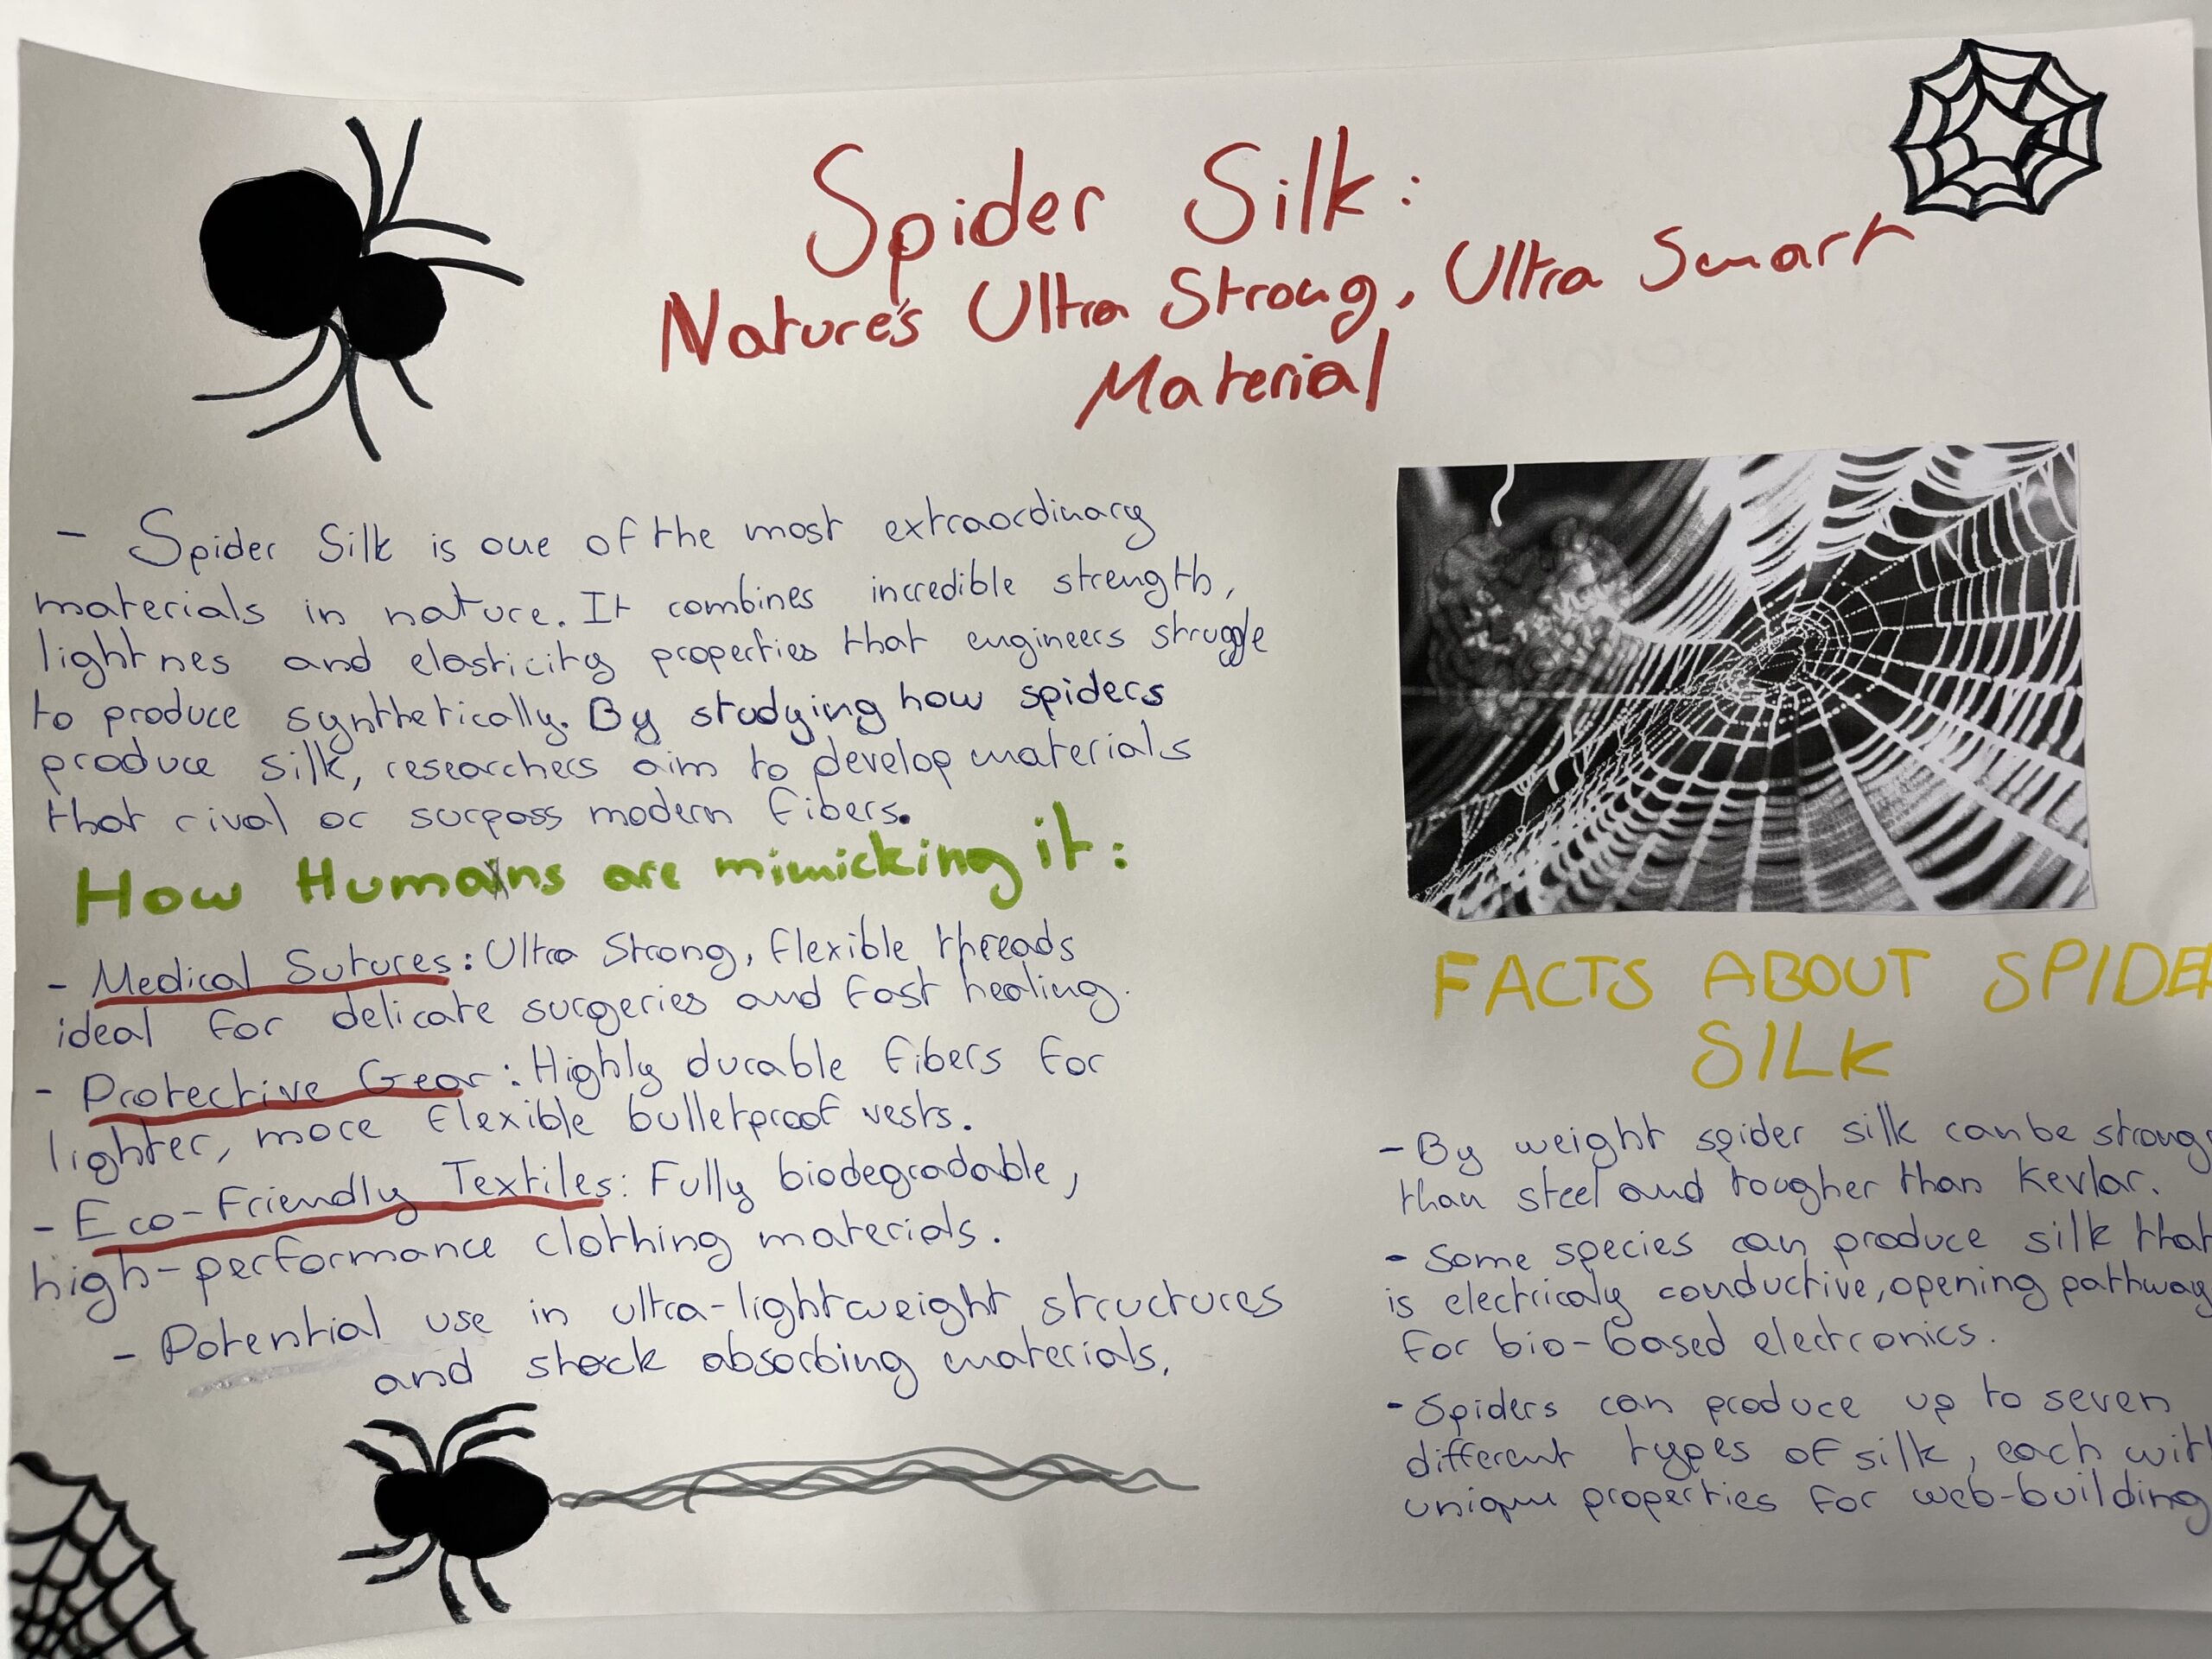 Spider Silk:
Nature's Ultra Strong, Ultra Smart
Material
- Spider Silk is one of the most extraordinary
materials in nature. It combines incredible strength,
lightnes and elasticity properties that engineers struggle
to produce synthetically. By studying how spiders
produce silk, researchers aim to develop materials
that rival or surpass modern fibers.
How Humans are mimicking it:
- Medical Sutures: Ultra Strong, flexible threads
ideal for delicate surgeries and fast healing.
- Protective Gear: Highly durable fibers for
lighter, more flexible bulletproof vests.
- Eco-Friendly Textiles: Fully biodegradable,
high-performance clothing materials.
- Potential use in ultra-lightweight structures
and shock absorbing materials.
FACTS ABOUT SPIDER
SILK
- By weight spider silk can be strong
than steel and tougher than Kevlar.
- Some species can produce silk that
is electricaly conductive, opening pathway
for bio-based electronics.
- Spiders can produce up to seven
different types of silk, each with
unique properties for web-building